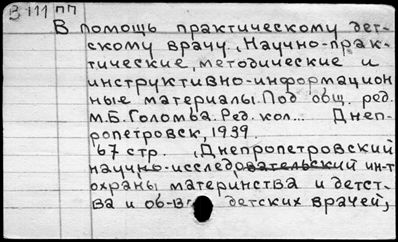 В 111 пп
В помощь практическому дет-
скому врачу. Научно-прак-
тические, методические и
инструктивно-информацион
ные материалы. Под общ. ред.
М.Б. Голомба. Ред. кол... Днеп-
ропетровск, 1939.
67 стр. (Днепропетровский
научно-исследовательский ин-т
охраны материнства и детст-
ва и об-во детских врачей,